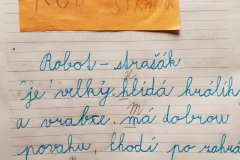 ROB STRAŠÁK
Robot - strašák
je velký, hlídá králík
a vrabce, má dobrou
povahu, chodí po zahra